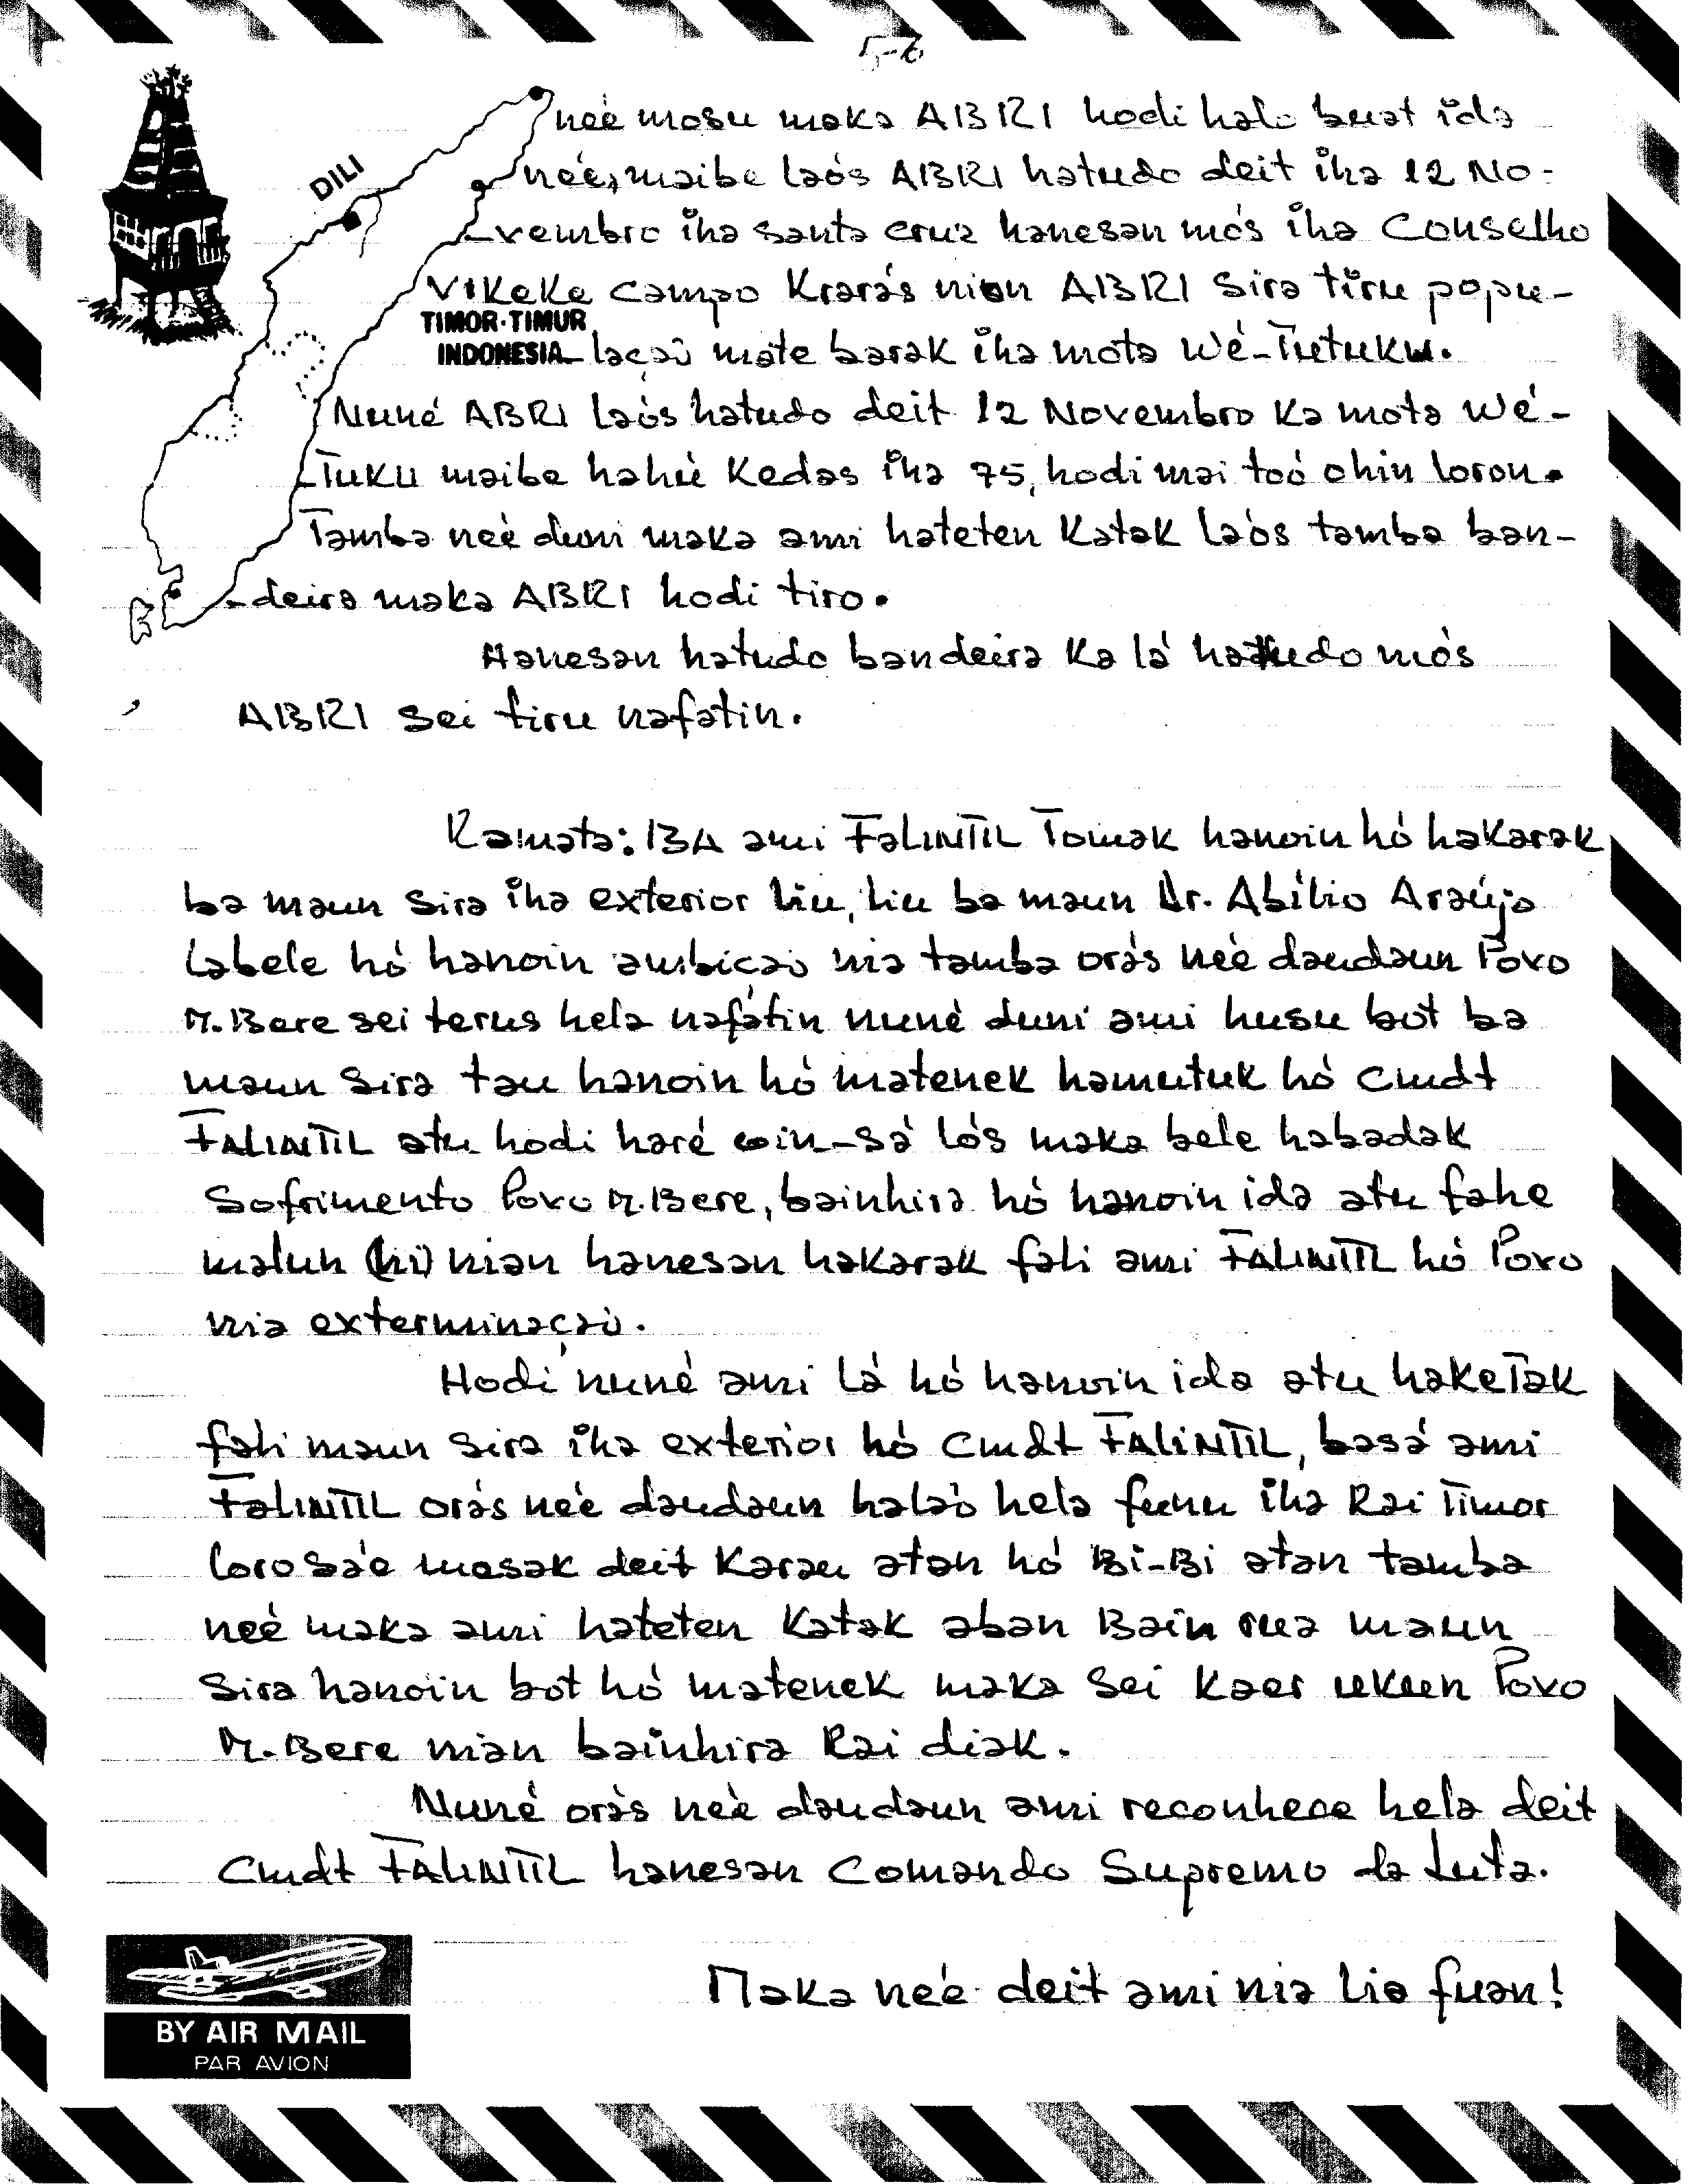 5-6
neé mosu maka ABRI hodi halo buat ida
neé, maibe laós ABRI hatudo deit iha 12 No-
DILI
-vembro iha santa cruz hanesan mós iha Conselho
Vikeke campo Krarás nian ABRI sira tiru popu-
TIMOR·TIMUR
INDONESIA
-laçaõ mate barak iha mota Wé-Tutuku.
Nuné ABRI laós hatudo deit 12 Novembro ka mota Wé-
-Tuku maibe hahú kedas iha 75, hodi mai toó ohin loron.
Tamba neé duni maka ami hateten katak laós tamba ban-
-deira maka ABRI hodi tiro.
Hanesan hatudo bandeira ka lá hatudo mós
ABRI sei tiru nafatin.
Ramata: BA ami FALINTIL Tomak hanoin hó hakarak
ba maun sira iha exterior liu, liu ba maun Dr. Abílio Araújo
labele hó hanoin ambiçaõ nia tamba orás neé daudaun Povo
M. Bere sei terus hela nafátin nuné duni ami husu bot ba
maun sira tau hanoin hó matenek hamutuk hó Cmdt
FALINTIL atu hodi haré oin-sá lós maka bele habadak
Sofrimento Povo M. Bere, bainhira hó hanoin ida atu fahe
malun (hi) nian hanesan hakarak fali ami FALINTIL hó Povo
nia exterminaçaõ.
Hodi nuné ami lá hó hanoin ida atu haketak
fali maun sira iha exterior hó Cmdt FALINTIL, basá ami
FALINTIL orás neé daudaun halaó hela funu iha Rai Timor
loro sáe mesak deit Karau atan hó Bi-Bi atan tamba
neé maka ami hateten Katak aban Bain rua maun
sira hanoin bot hó matenek maka sei kaer ukun Povo
M. Bere nian bainhira Rai diak.
Nuné orás neé daudaun ami reconhece hela deit
Cmdt FALINTIL hanesan Comando Supremo da Luta.
Maka neé deit ami nia lia fuan!
BY AIR MAIL
PAR AVION